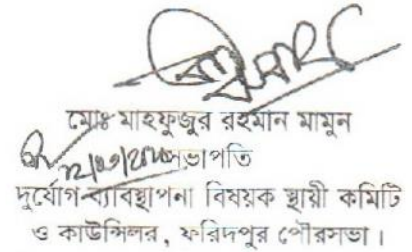 মোঃ মাহফুজুর রহমান মামুন
সভাপতি
দুর্যোগ-ব্যাবস্থাপনা বিষয়ক স্থায়ী কমিটি
ও কাউন্সিলর, ফরিদপুর পৌরসভা।